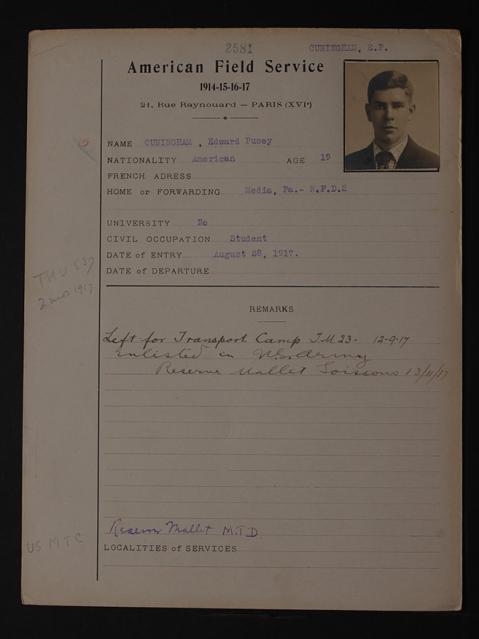 2581
CUNINGHAM, E.P.
American Field Service
1914-15-16-17
21, Rue Raynouard — PARIS (XVIe)
NAME CUNINGHAM , Edward Pusey
NATIONALITY American AGE 19
FRENCH ADRESS
HOME or FORWARDING Media, Pa.- R.F.D.2
UNIVERSITY No
CIVIL OCCUPATION Student
DATE of ENTRY August 28, 1917.
DATE of DEPARTURE
TMU 537
2 nov 1917
REMARKS
Left for Transport Camp T.M 23- 12-9-17
Enlisted in U.S. Army
Reserve Mallet Soissons 13/11/17
Reserve Mallet M.T.D
US MTC
LOCALITIES of SERVICES